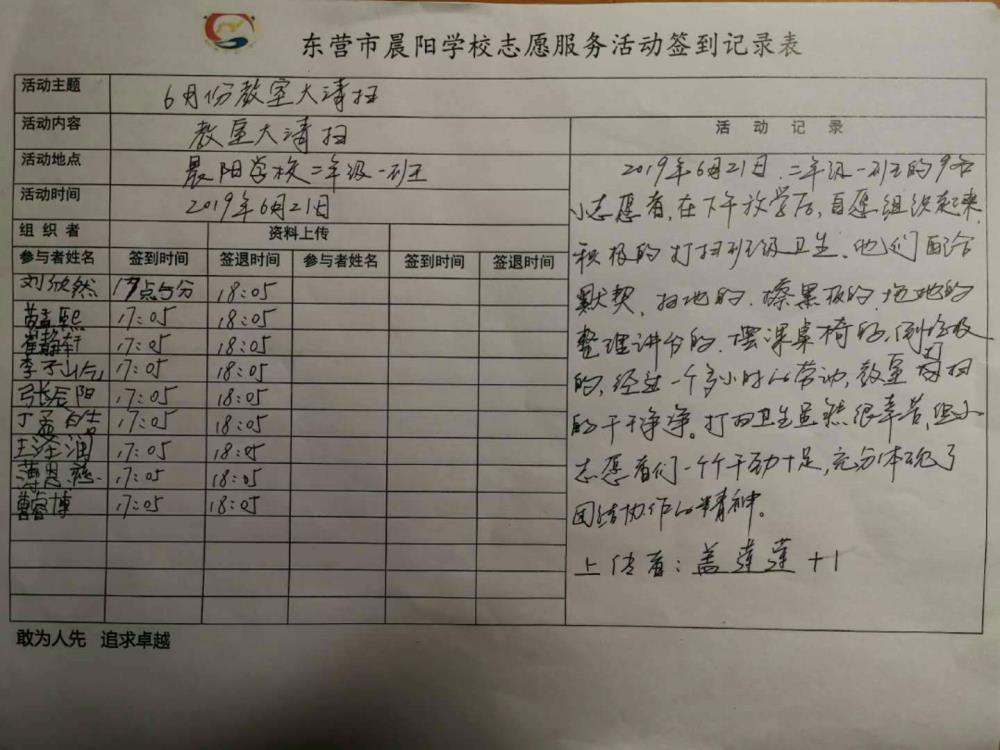 东营市晨阳学校志愿服务活动签到记录表
活动主题 6月份教室大清扫
活动内容 教室大清扫
活动地点 晨阳学校二年级一班
活动时间 2019年6月21日
组织者 资料上传
参与者姓名 签到时间 签退时间 参与者姓名 签到时间 签退时间
刘欣然 17点5分 18:05
黄孟熙 17:05 18:05
崔静轩 17:05 18:05
李 17:05 18:05
张辰阳 17:05 18:05
丁孟 17:05 18:05
王汪润 17:05 18:05
薄思慈 17:05 18:05
曹睿博 17:05 18:05
活动记录
2019年6月21日,二年级一班的9名
小志愿者,在下午放学后,自愿组织起来,
积极的打扫班级卫生。他们配合
默契,扫地的,擦黑板的,拖地的
整理讲台的,摆课桌椅的,倒垃圾
的,经过一个多小时的劳动,教室打扫
的干干净净。打扫卫生虽然很辛苦,但小
志愿者们一个个干劲十足,充分体现了
团结协作的精神。
上传者:盖莲莲+1
敢为人先 追求卓越